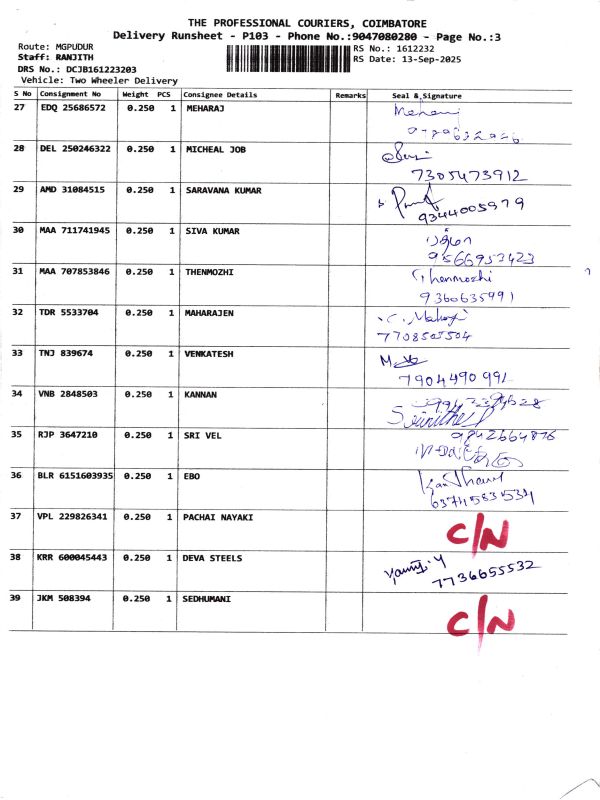 THE PROFESSIONAL COURIERS, COIMBATORE
Delivery Runsheet - P103 - Phone No.:9047080280 - Page No.:3
Route: MGPUDUR
Staff: RANJITH
DRS No.: DCJB161223203
Vehicle: Two Wheeler Delivery
RS No.: 1612232
RS Date: 13-Sep-2025
S No Consignment No Weight PCS Consignee Details Remarks Seal & Signature
27 EDQ 25686572 0.250 1 MEHARAJ
28 DEL 250246322 0.250 1 MICHEAL JOB
7305473912
29 AMD 31084515 0.250 1 SARAVANA KUMAR
9344005979
30 MAA 711741945 0.250 1 SIVA KUMAR
9566953423
31 MAA 707853846 0.250 1 THENMOZHI Thenmozhi
9360635991
32 TDR 5533704 0.250 1 MAHARAJEN
7708505504
33 TNJ 839674 0.250 1 VENKATESH
7904490991
34 VNB 2848503 0.250 1 KANNAN
35 RJP 3647210 0.250 1 SRI VEL 9842664876
36 BLR 6151603935 0.250 1 EBO
37 VPL 229826341 0.250 1 PACHAI NAYAKI C/N
38 KRR 600045443 0.250 1 DEVA STEELS
7736655532
39 JKM 508394 0.250 1 SEDHUMANI C/N